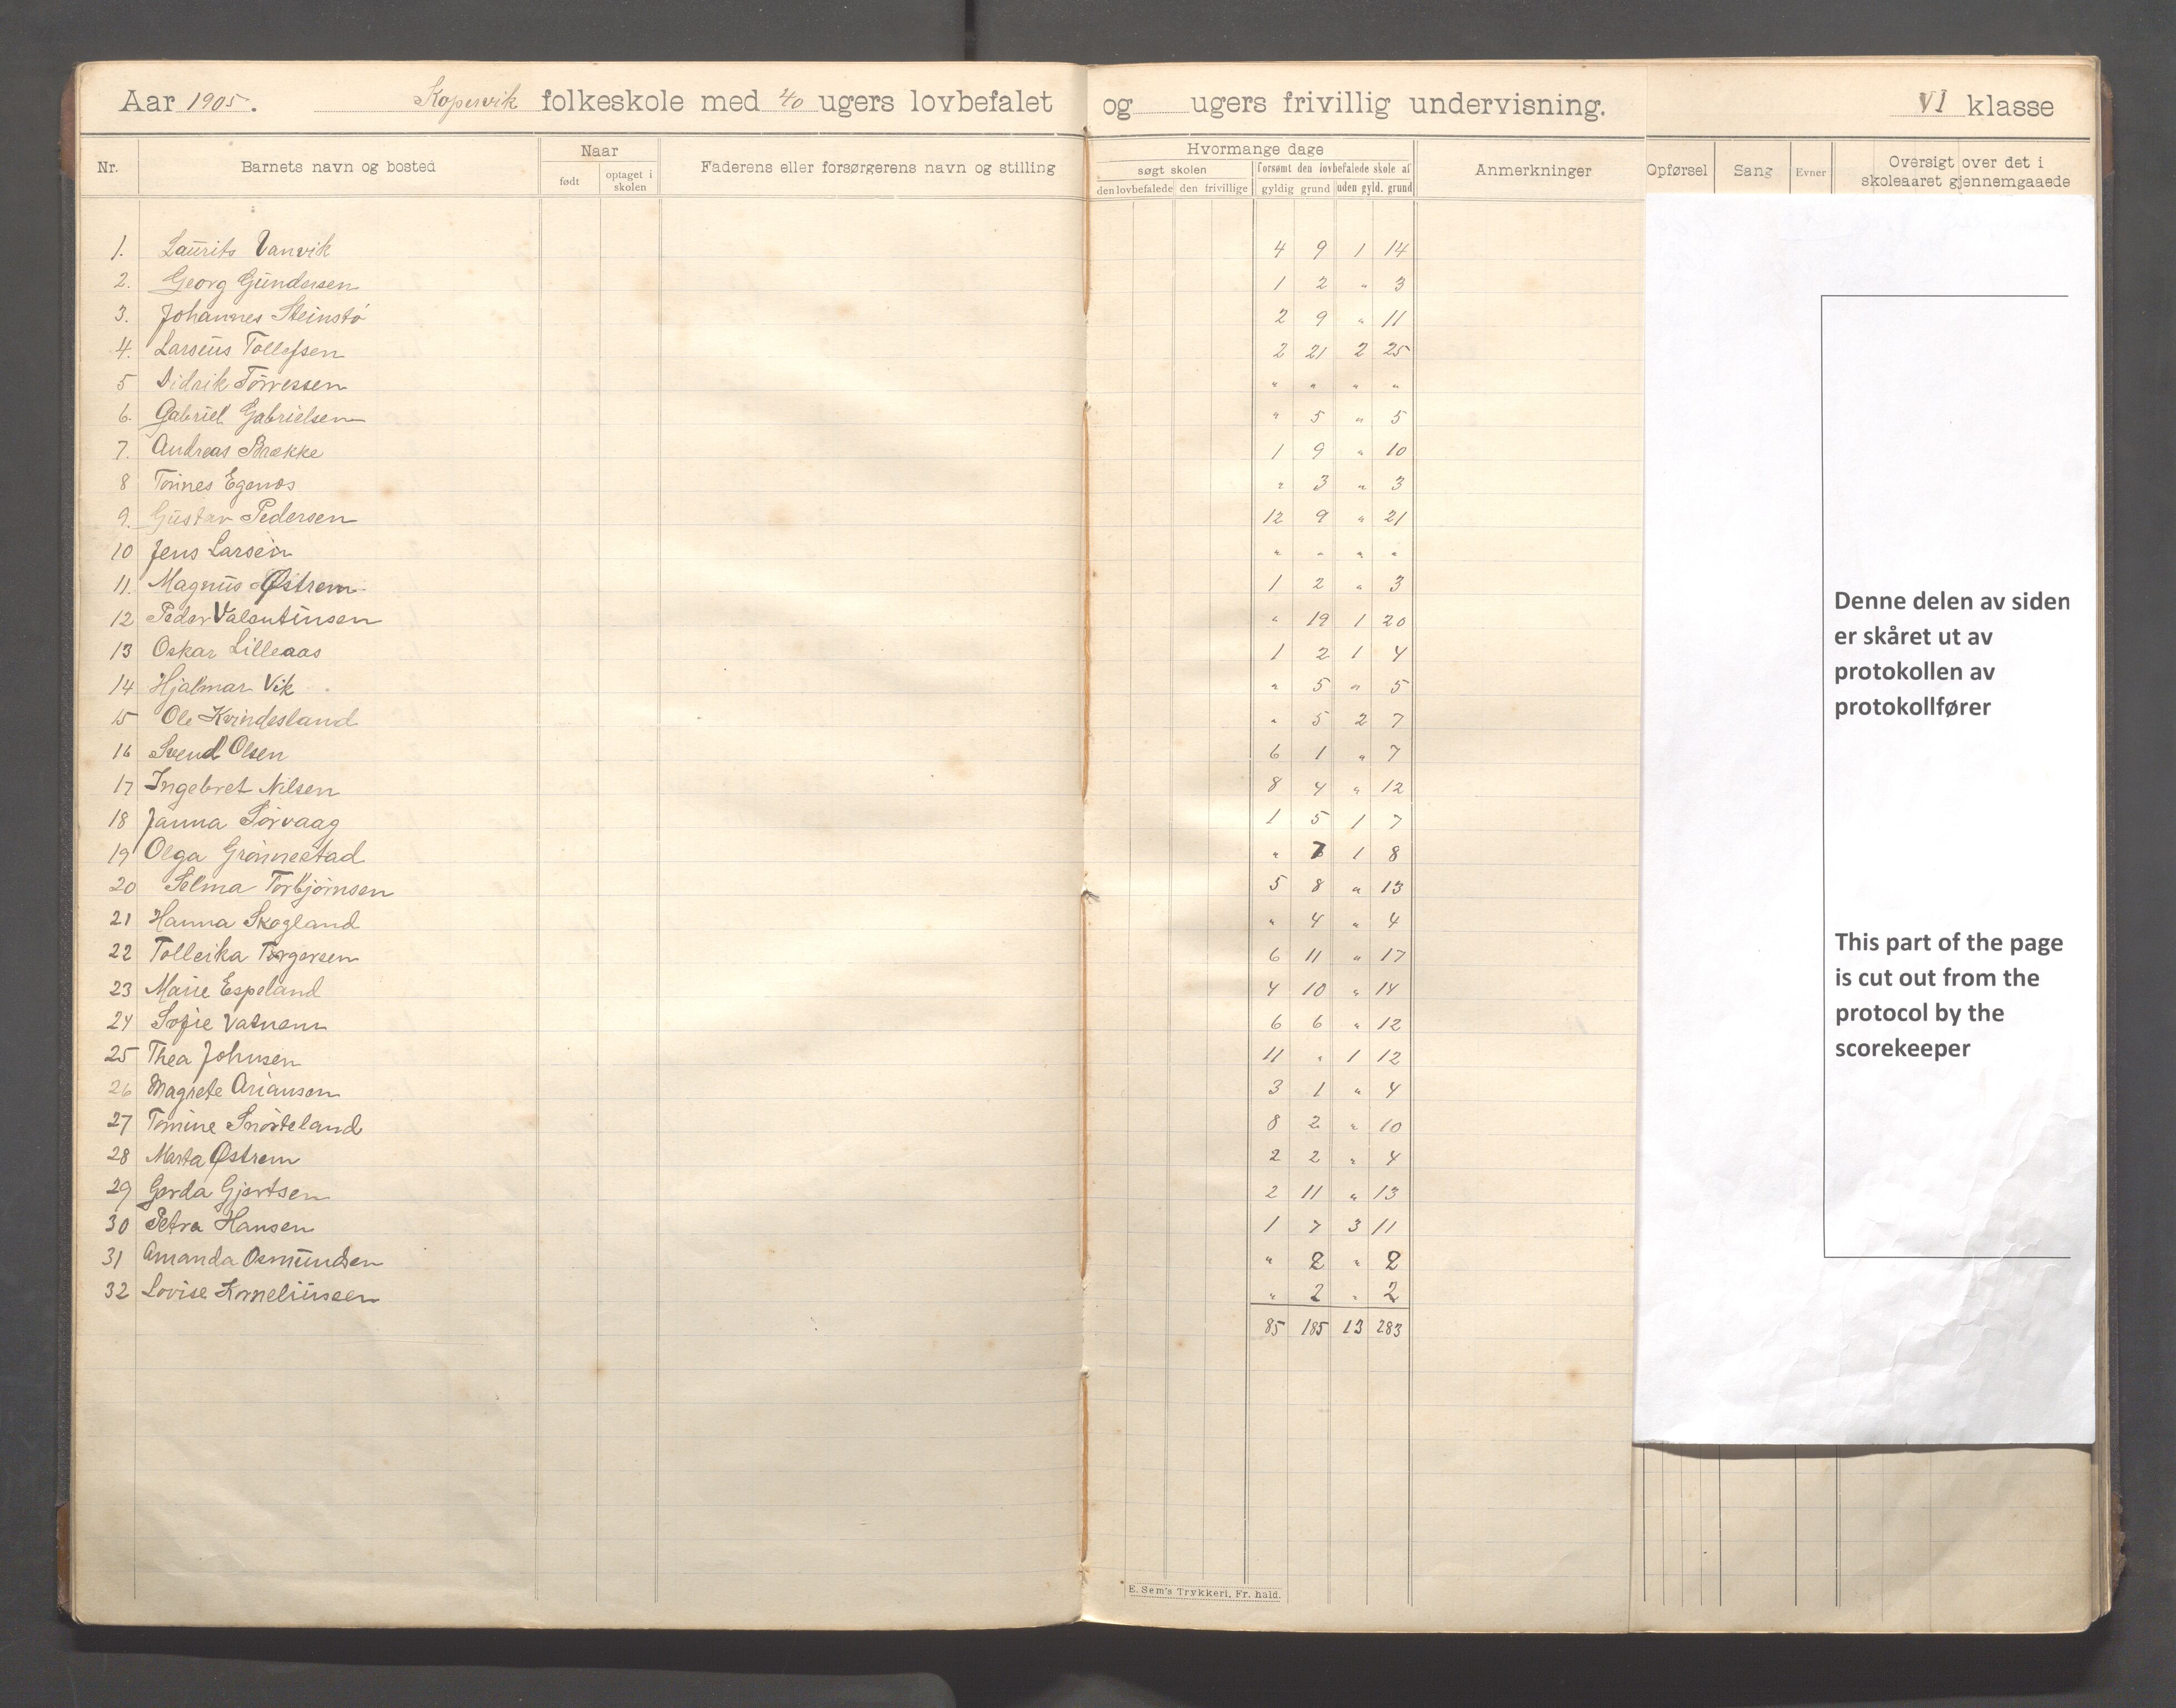 Aar 1905. Kopervik folkeskole med 40 ugers lovbefalet og ugers frivillig undervisning. VI klasse
Nr. Barnets navn og bosted Naar født optaget i skolen Faderens eller forsørgerens navn og stilling Hvormange dage søgt skolen den lovbefalede den frivillige forsømt den lovbefalede skole af gyldig grund uden gyld. grund Anmerkninger Opførsel Sang Evner Oversigt over det i skoleaaret gjennemgaaede
1. Laurits Vanvik 4 9 1 14
2. Georg Gundersen 1 2 " 3
3. Johannes Steinstø 2 9 " 11
4. Larseus Tollefsen 2 21 2 25
5 Didrik Tørressen " " " "
6. Gabriel Gabrielsen " 5 " 5
7. Andreas Brække 1 9 " 10
8 Tønnes Egenæs " 3 " 3
9. Gustav Pedersen 12 9 " 21
10 Jens Larsen " " " "
11. Magnus Østrem 1 2 " 3
12 Peder Valentinsen " 19 1 20
13 Oskar Lilleaas 1 2 1 4
14 Hjalmar Vik " 5 " 5
15 Ole Kvindesland " 5 2 7
16 Svend Olsen 6 1 " 7
17 Ingebret Nilsen 8 4 " 12
18 Janna Sørvaag 1 5 1 7
19 Olga Grønnestad " 7 1 8
20 Selma Torbjørnsen 5 8 " 13
21 Hanna Skogland " 4 " 4
22 Tolleika Torgersen 6 11 " 17
23 Marie Espeland 4 10 " 14
24 Sofie Vatnem 6 6 " 12
25 Thea Johnsen 11 " 1 12
26 Magrete Ariansen 3 1 " 4
27 Tomine Snørteland 8 2 " 10
28 Marta Østrem 2 2 " 4
29 Gerda Gjertsen 2 11 " 13
30 Petra Hansen 1 7 3 11
31 Amanda Osmundsen " 2 " 2
32 Lovise Korneliussen " 2 " 2
85 185 13 283
E. Sem's Trykkeri, Fr. hald.
Denne delen av siden
er skåret ut av
protokollen av
protokollfører
This part of the page
is cut out from the
protocol by the
scorekeeper